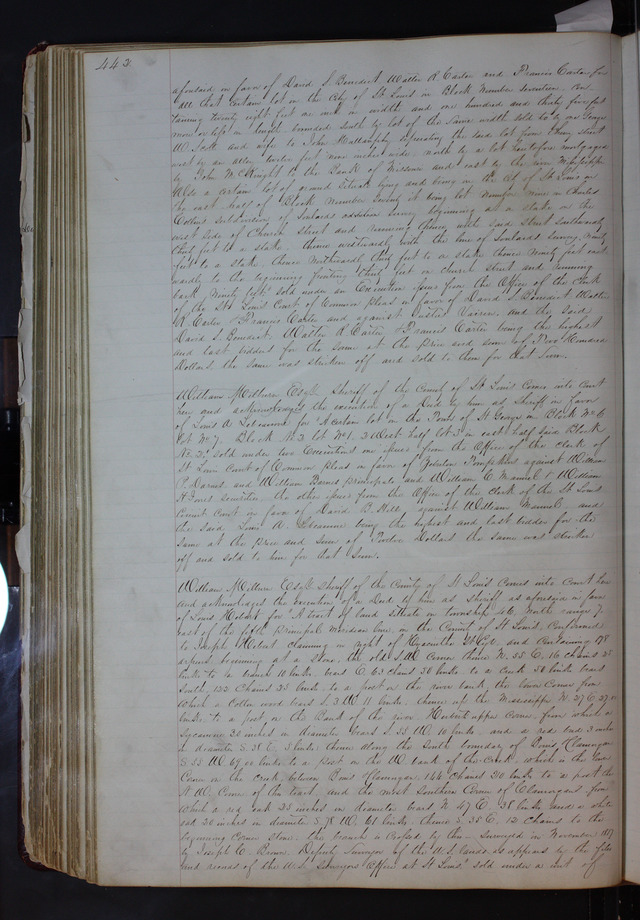 442
aforesaid in favor of David S. Benedict Walter R. Carter and Francis Carter for
all that certain lot in the City of St Louis in Block Number seventeen, con
taining twenty eight feet six inch in width and one hundred and thirty five feet
more or less in length bounded South by lot of the same width sold to by George
W. and wife to John Mullanphy separating the said lot from three street
west by an alley twelve feet nine inches wide, north by a lot heretofore mortgaged
by John McKnight to the Bank of Missouri and east by the river Mississippi
Also a certain lot of ground situate lying and being in the City of St Louis on
the east half of Block Number Twenty it being lot Number nine in Charles
Collins Subdivision of Soulards addition Survey beginning at a stake on the
west side of Church street and running thence with said street southwardly
thirty feet to a stake, thence westwardly with the line of Soulards Survey ninety
feet to a stake, thence Northwardly thirty feet to a stake thence Ninety feet east
wardly to the beginning fronting thirty feet on church street and running
back Ninety feet" sold under an Execution issued from the Office of the Clerk
of the St Louis Court of Common pleas in favor of David S Benedict Walter
R Carter & Francis Carter and against and the said
David S. Benedict, Walter R Carter & Francis Carter being the highest
and last bidders for the same at the price and sum of Two Hundred
Dollars the same was stricken off and sold to them for that Sum.
William Milburn Esqr. Sheriff of the County of St Louis Comes into Court
here and acknowledges the execution of a Deed by him as Sheriff in favor
of Louis A. for "A certain lot in the Town of St George in Block No 6
lot No 7. Block No 3 lot No 1. 2 West half lot 3 in east half said Block
No 3," sold under two Executions one issued from the Office of the Clerk of
St Louis Court of Common Pleas in favor of Tompkins against William
P. and William Barnes principals and William C Mannel & William
H Jones securities, the other issued from the Office of the Clerk of the St Louis
Circuit Court in favor of David B. Hill, against William Mannel and
the said Louis A. being the highest and last bidder for the
same at the price and sum of Twelve Dollars the same was stricken
off and sold to him for that Sum.
William Milburn Esqr. Sheriff of the County of St Louis Comes into Court here
and acknowledges the execution of a Deed by him as Sheriff as aforesaid in favor
of Louis Hebert for "A tract of land situate in township 46, North range 7
east of the fifth principal meridian line, in the County of St Louis, Confirmed
to Joseph Hebert claiming in right of Hyacinthe St Cyr. and Containing 178
arpens, beginning at a Stone, the old S.W Corner thence N. 55 E. 16 chains 25
links to a branch 10 links, bears E 63 chains 50 links to a creek 50 links bears
South, 122 Chains 25 links to a post on the river bank, the lower Corner from
which a Cotton wood bears S. 3 W 11 links, thence up the Mississippi N. 27 E 27
links, to a post, on the Bank of the river Heberts upper Corner, from which a
Sycamore 30 inches in diameter bears S. 55 W 10 links, and a red oak 3 inches
in diameter S. 38 E. 5 links; thence along the South boundary of Louis Clamorgan
S 55 W. 69.00 links to a post on the W bank of the Creek, which is the lower
Corner on the Creek, between Louis Clamorgan 144 chains 50 links to a post the
N W. Corner of the tract, and the most Southern Corner of Clamorgans from
which a red oak 25 inches in diameter bears N 47 E. 38 links, and a white
oak 20 inches in diameter S. 78 W. 61 links, thence S. 35 E, 12 chains to the
beginning Corner Stone. the branch is crossed by this Surveyed in November 1817
by Joseph C. Brown Deputy Surveyor of the U.S. lands as appears by the files
and records of the U.S. Surveyors Office at St Louis," sold under a writ of